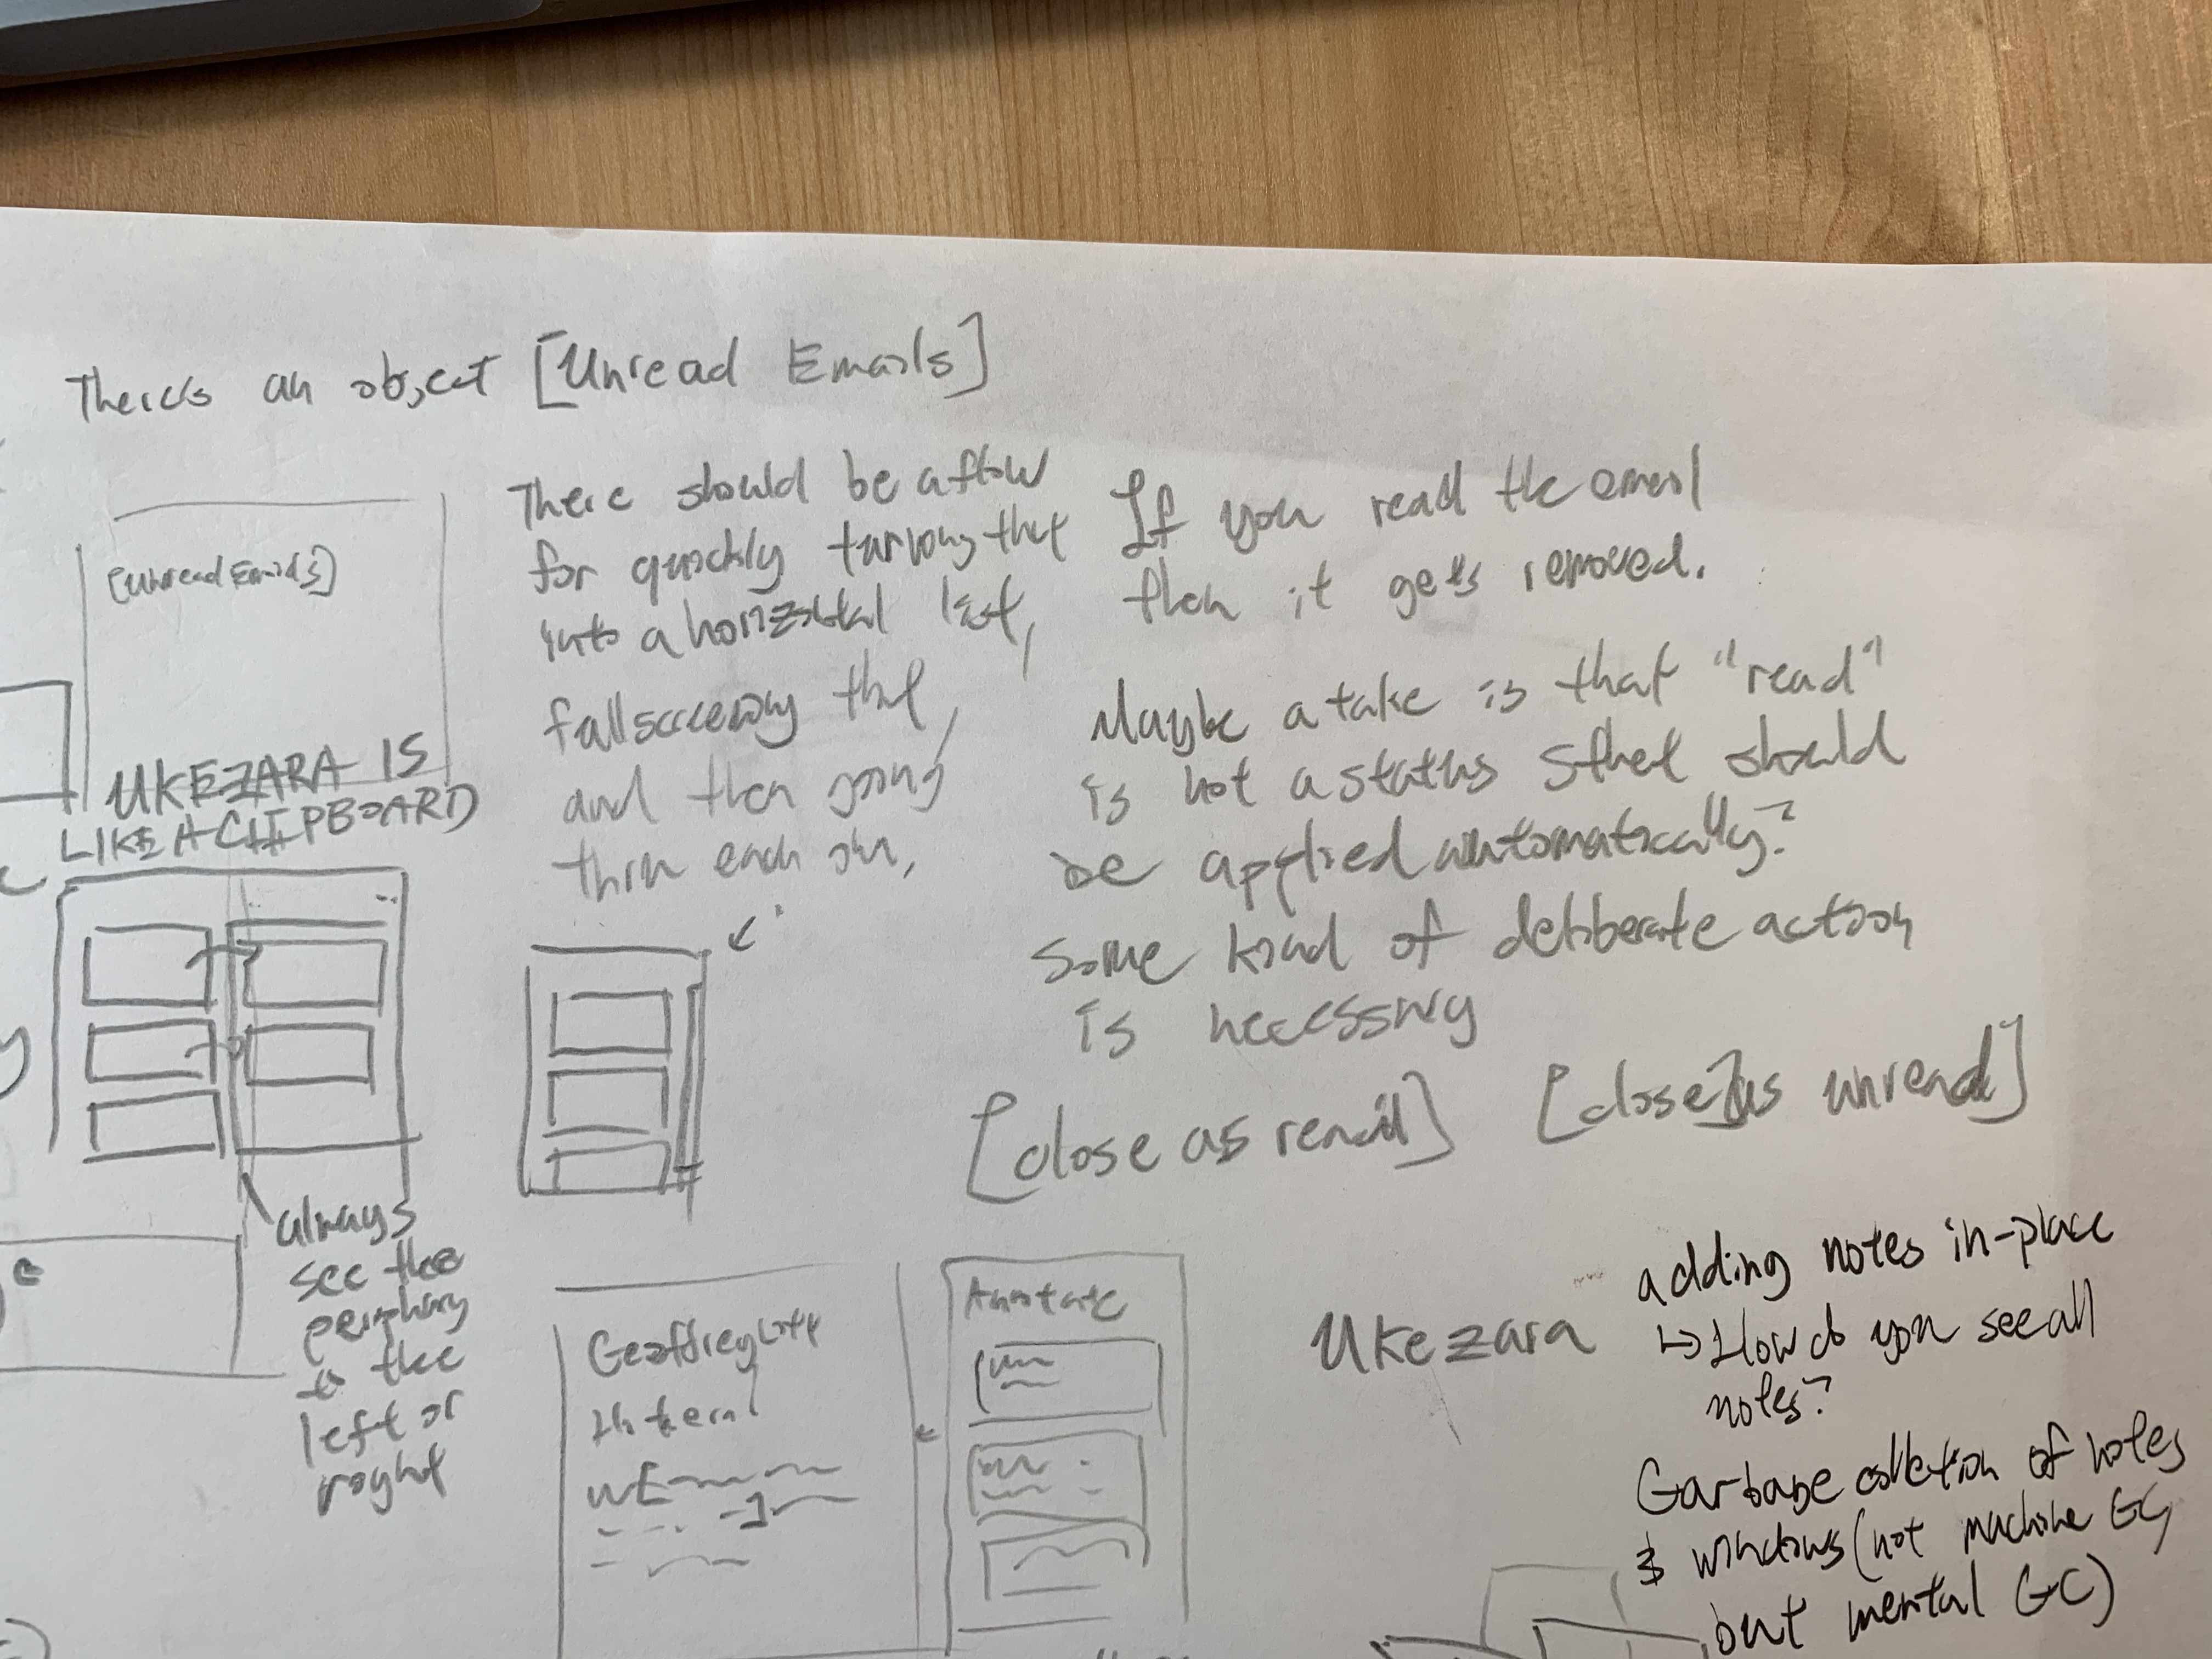 There's an object [Unread Emails]
[Unread Emails]
There should be a flow
for quickly turning that
into a horizontal list,
fullscreening that,
and then going
thru each one,
If you read the email
then it gets removed.
Maybe a take is that "read"
is not a status that should
be applied automatically?
Some kind of deliberate action
is necessary
[close as read]
[close as unread]
UKEZARA IS
LIKE A CLIPBOARD
always
see the
periphery
to the
left or
right
Geoffrey Litt
Annotate
Ukezara
adding notes in-place
↳ How do you see all
notes?
Garbage collection of notes
& windows (not machine GC,
but mental GC)